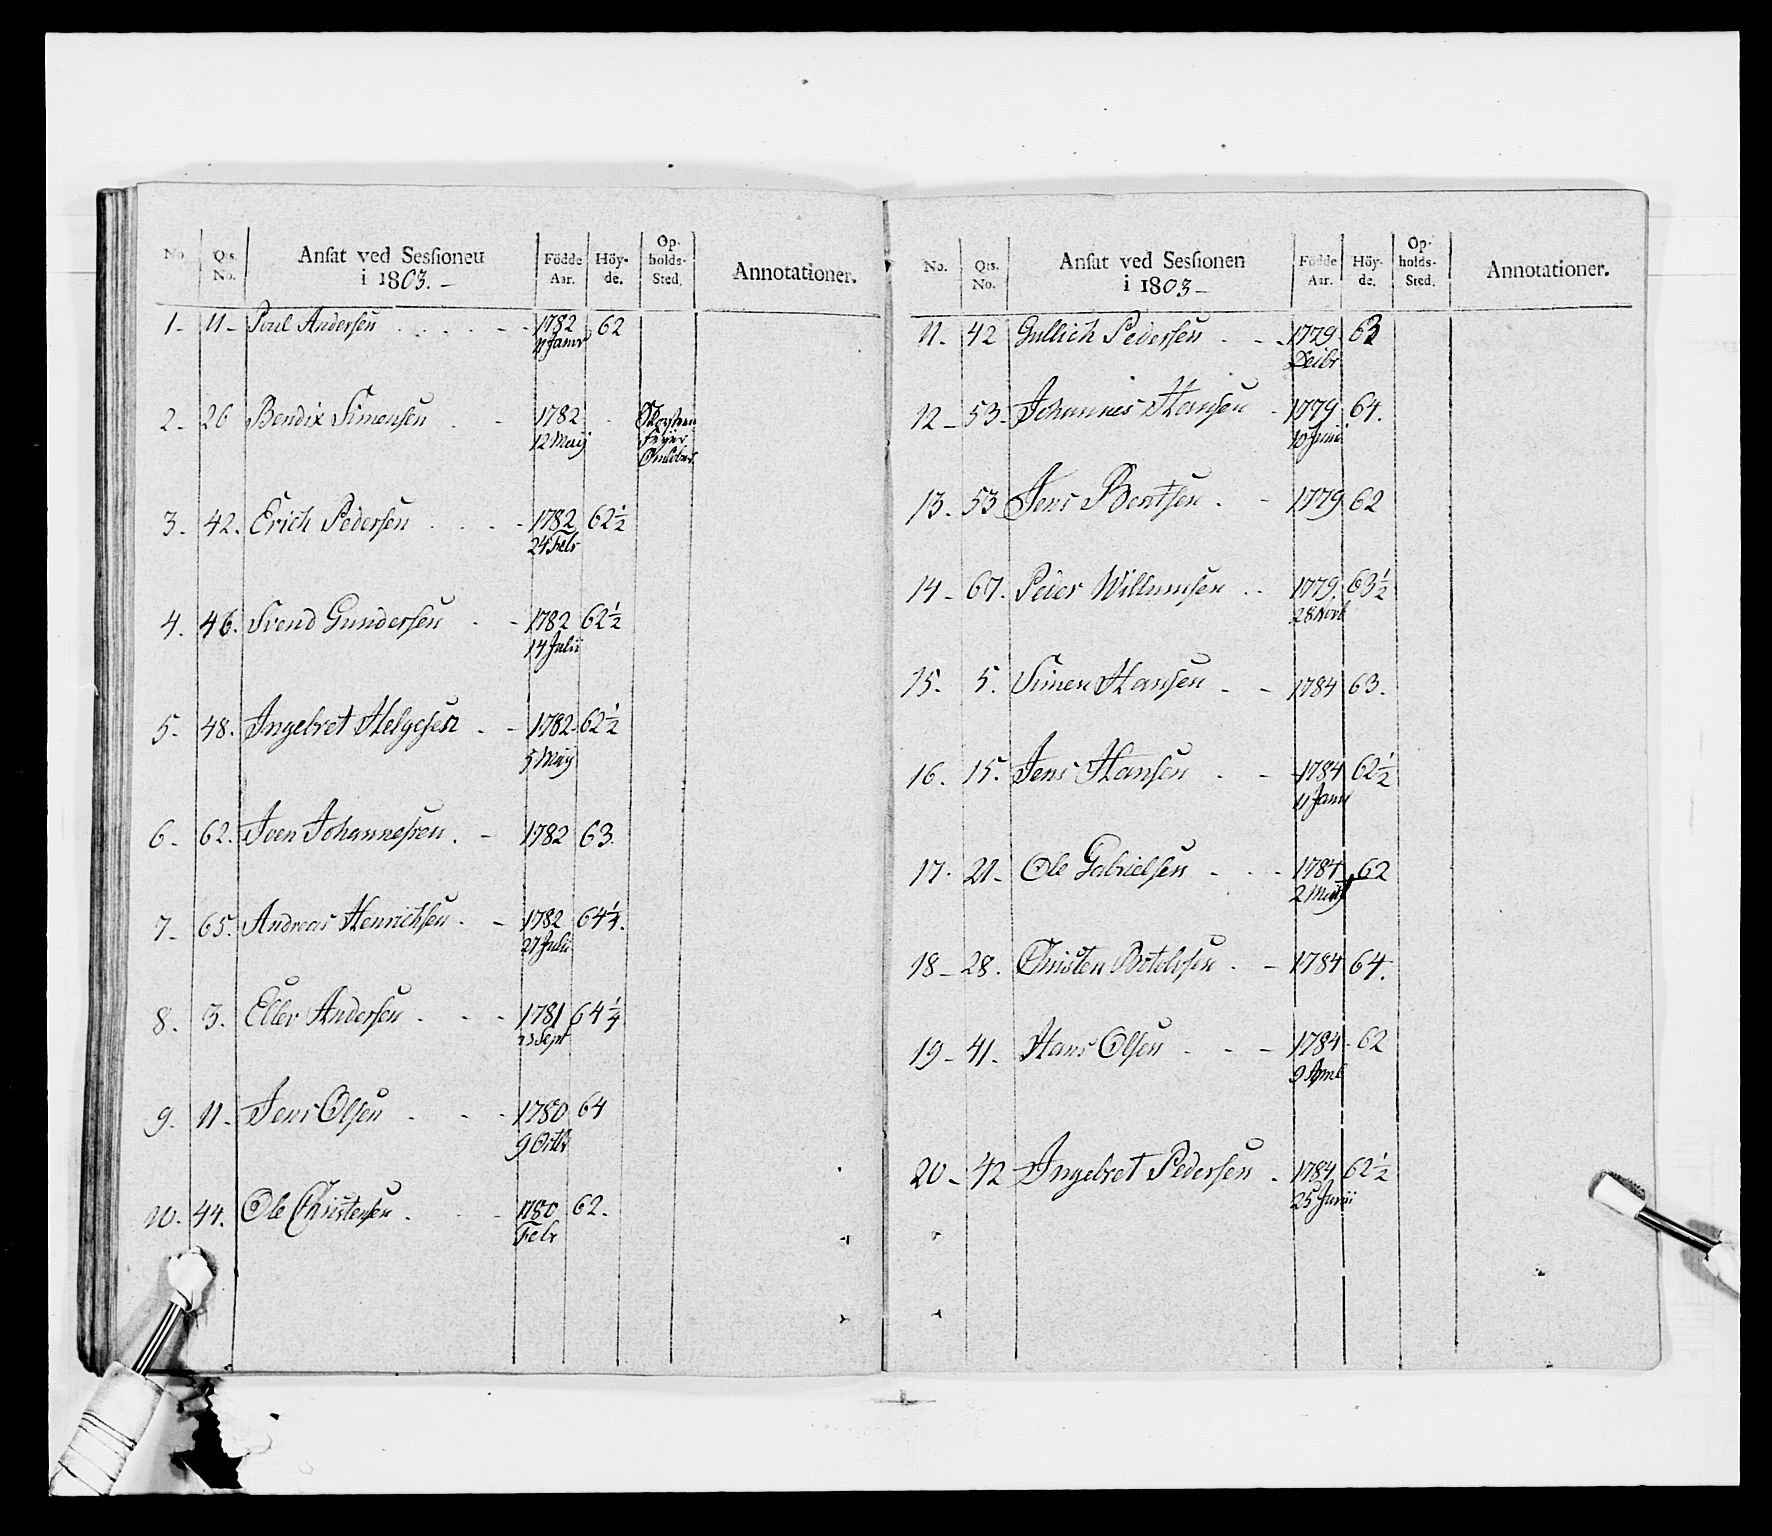 No. Qts. No. Ansat ved Sessionen i 1803. - Födde Aar. Höyde. Opholds-Sted. Annotationer.
1 - 11 - Poul Andersen . . . . - - 1782 62
11 Janr
2. 26 Bendix Simensen . - 1782
12 Maij
3. 42. Erich Pedersen . . . - 1782 62½
24 Febr
4. 46. Svend Gundersen . - 1782 62½
14 Julii
5. 48. Ingebret Helgesen . - 1782. 62½
5 Maij
6. 62. Iven Johannessen . - 1782 63.
7. 65. Andreas Henrichsen . - 1782 64¼.
27 Julii
8. 3. Eller Andersen . - - 1781 64¼
Sept
9. 11 - Jens Olsen . - - 1780 64
9 Octbr
10. 44. Ole Christensen . - - 1780 62.
Febr
No. Qts. No. Ansat ved Sessionen i 1803 - Födde Aar. Höyde. Opholds-Sted. Annotationer.
11. 42 Gullich Pedersen . - - 1779 63
Decbr
12 - 53. Johannes Hansen - 1779 64.
10 Junii
13. 53 Jens Bentsen . - 1779 62
14 - 67. Peder Willumsen . . 1779. 63½
28 Novb
15. 5. Simen Hansen . - 1784 63.
16. 15. Jens Hansen . - 1784 62½
11 Janr
17. 21 - Ole Gabrielsen . - - 1784 62
2 Martj
18 - 28. Christen Botolvsen . - 1784 64.
19 - 41. Hans Olsen . - - 1784 - 62
9 April
20 - 42 Ingebret Pedersen . 1784 62½
25 Junii